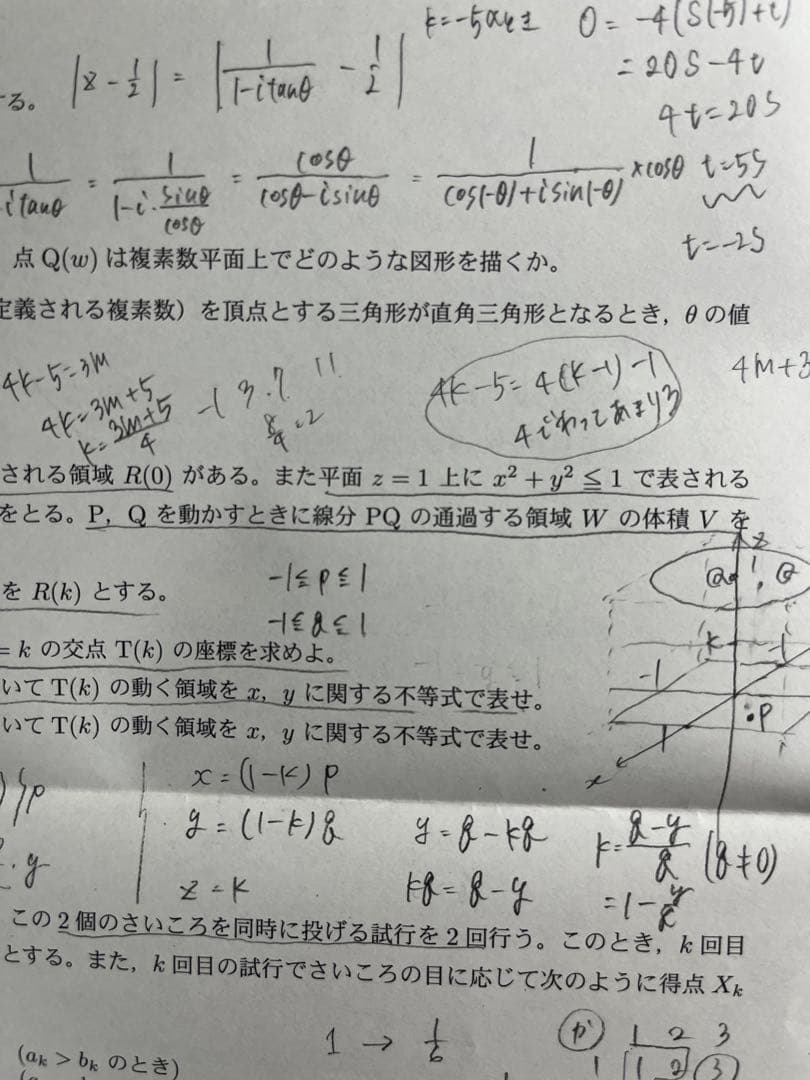 k=-5のとき 0=-4(S(-5)+t)
=20S-4t
4t=20S
t=5S
t=-2S
する。 |z-1/2| = |1/(1-itanθ) - 1/2|
1/(itanθ) = 1/(1-i・sinθ/cosθ) = cosθ/(cosθ-isinθ) = 1/(cos(-θ)+isin(-θ)) ×cosθ
点 Q(w) は複素数平面上でどのような図形を描くか。
定義される複素数）を頂点とする三角形が直角三角形となるとき，θ の値
4k-5=3m
4k=3m+5
k=(3m+5)/4
-1 3.7 11
8/4=2
4k-5=4(k-1)-1
4でわってあまり3
4m+3
される領域 R(0) がある。また平面 z = 1 上に x² + y² ≦ 1 で表される
をとる。P，Q を動かすときに線分 PQ の通過する領域 W の体積 V を
を R(k) とする。
-1≦p≦1
-1≦q≦1
= k の交点 T(k) の座標を求めよ。
いて T(k) の動く領域を x，y に関する不等式で表せ。
いて T(k) の動く領域を x，y に関する不等式で表せ。
z
1
k
-1
-1
1
P
x
x=(1-k)p
y=(1-k)q
z=k
y=q-kq
kq=q-y
k=(q-y)/q (q≠0)
=1-y/q
この 2 個のさいころを同時に投げる試行を 2 回行う。このとき，k 回目
とする。また，k 回目の試行でさいころの目に応じて次のように得点 Xₖ
1 → 1/6
か 1 2 3
1 1 2 3
(aₖ > bₖ のとき)